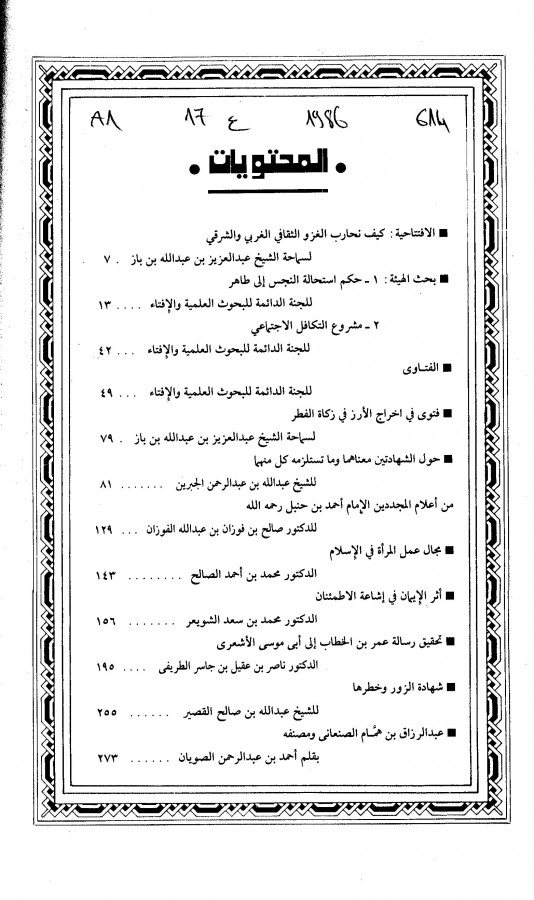 614 1986 ع 17 A1
• المحتويات •
■ الافتتاحية : كيف نحارب الغزو الثقافي الغربي والشرقي
لسماحة الشيخ عبدالعزيز بن عبدالله بن باز . ٧
■ بحث الهيئة : ١ ـ حكم استحالة النجس إلى طاهر
للجنة الدائمة للبحوث العلمية والإفتاء .... ١٣
٢ ـ مشروع التكافل الاجتماعي
للجنة الدائمة للبحوث العلمية والإفتاء ... ٤٢
■ الفتاوى
للجنة الدائمة للبحوث العلمية والإفتاء ... ٤٩
■ فتوى في اخراج الأرز في زكاة الفطر
لسماحة الشيخ عبدالعزيز بن عبدالله بن باز . ٧٩
■ حول الشهادتين معناهما وما تستلزمه كل منهما
للشيخ عبدالله بن عبدالرحمن الجبرين ....... ٨١
من أعلام المجددين الإمام أحمد بن حنبل رحمه الله
للدكتور صالح بن فوزان بن عبدالله الفوزان ... ١٢٩
■ مجال عمل المرأة في الإسلام
الدكتور محمد بن أحمد الصالح ........ ١٤٣
■ أثر الإيمان في إشاعة الاطمئنان
الدكتور محمد بن سعد الشويعر ....... ١٥٦
■ تحقيق رسالة عمر بن الخطاب إلى أبى موسى الأشعرى
الدكتور ناصر بن عقيل بن جاسر الطريفى .... ١٩٥
■ شهادة الزور وخطرها
للشيخ عبدالله بن صالح القصير ...... ٢٥٥
■ عبدالرزاق بن همَّام الصنعانى ومصنفه
بقلم أحمد بن عبدالرحمن الصويان ...... ٢٧٣